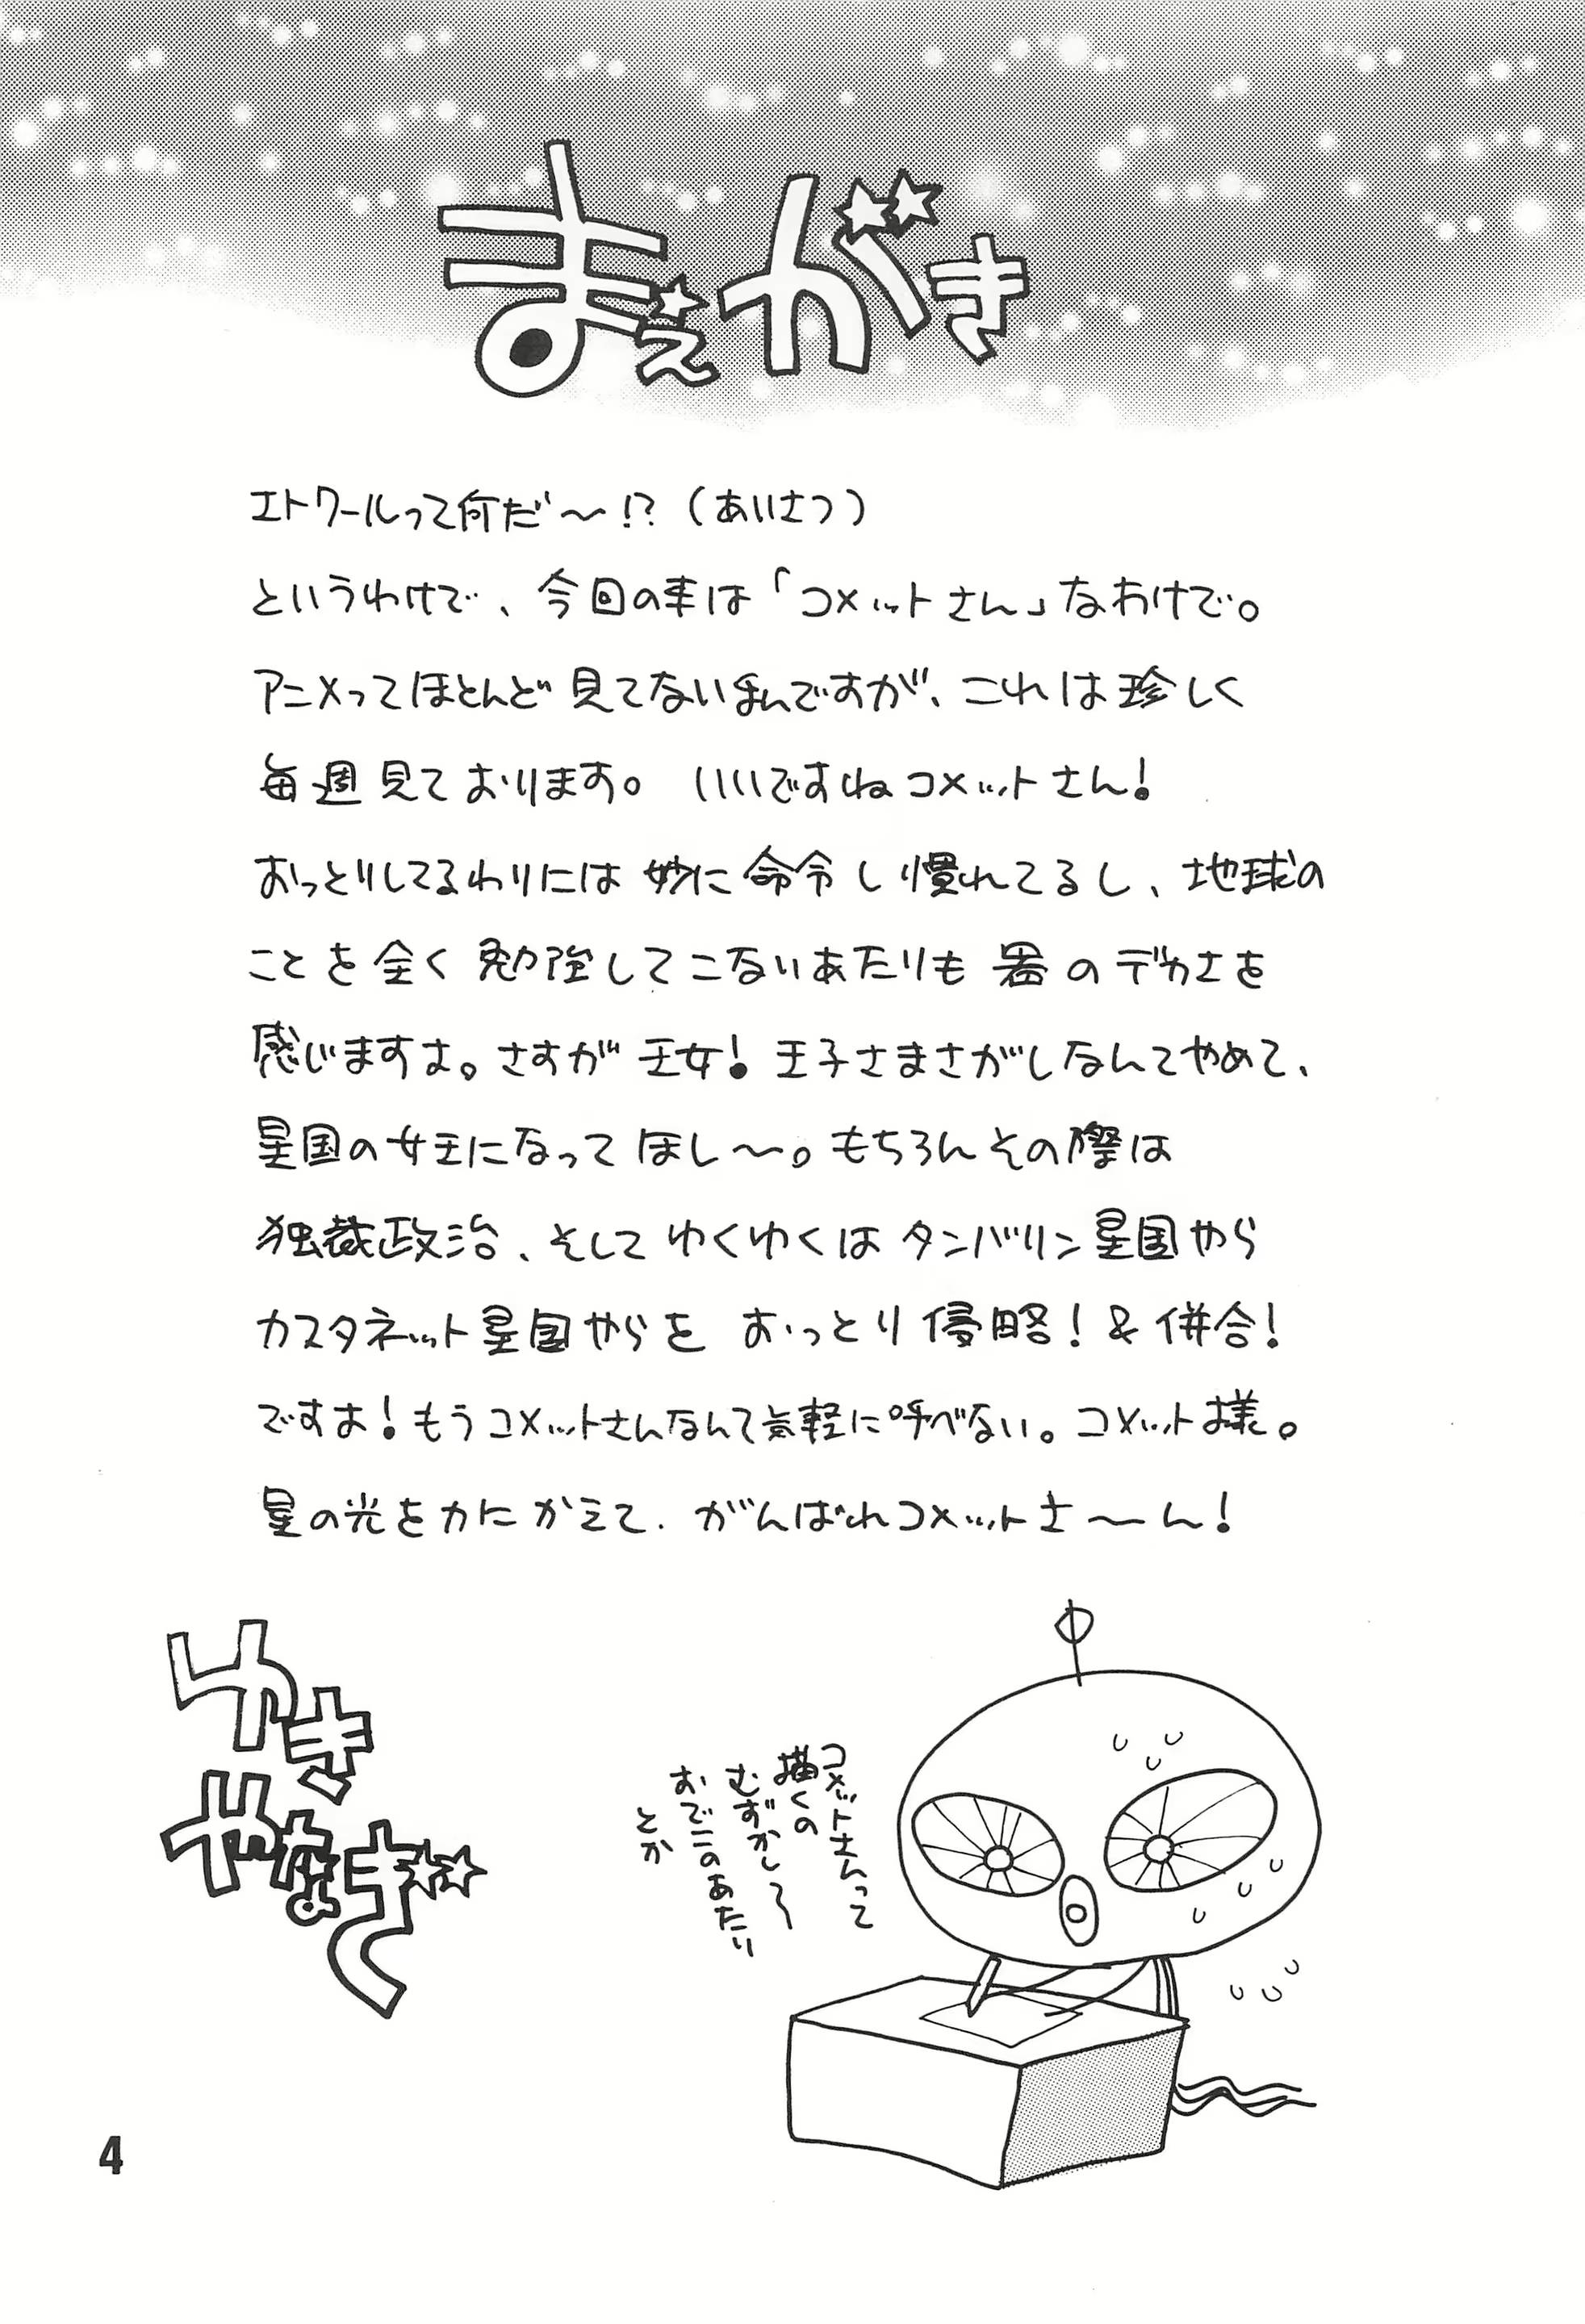 まえがき
エトワールって何だ〜!?(あいさつ)
というわけで、今回の本は「コメットさん」なわけで。
アニメってほとんど見てないまんですが、これは珍しく
毎週見ております。 いいですねコメットさん!
おっとりしてるわりには妙に命令し慣れてるし、地球の
ことを全く勉強してこないあたりも器のデカさを
感じますよ。さすが王女!王子さまさがしなんてやめて、
星国の女王になってほし〜。もちろんその際は
独裁政治、そしてゆくゆくはタンバリン星国やら
カスタネット星国やらを おっとり侵略!&併合!
ですよ!もうコメットさんなんて気軽に呼べない。コメット様。
星の光を力にかえて、がんばれコメットさ〜ん!
コメットさんって
描くの
むずかし〜
おでこのあたり
とか
ゆき
やなぎ
4